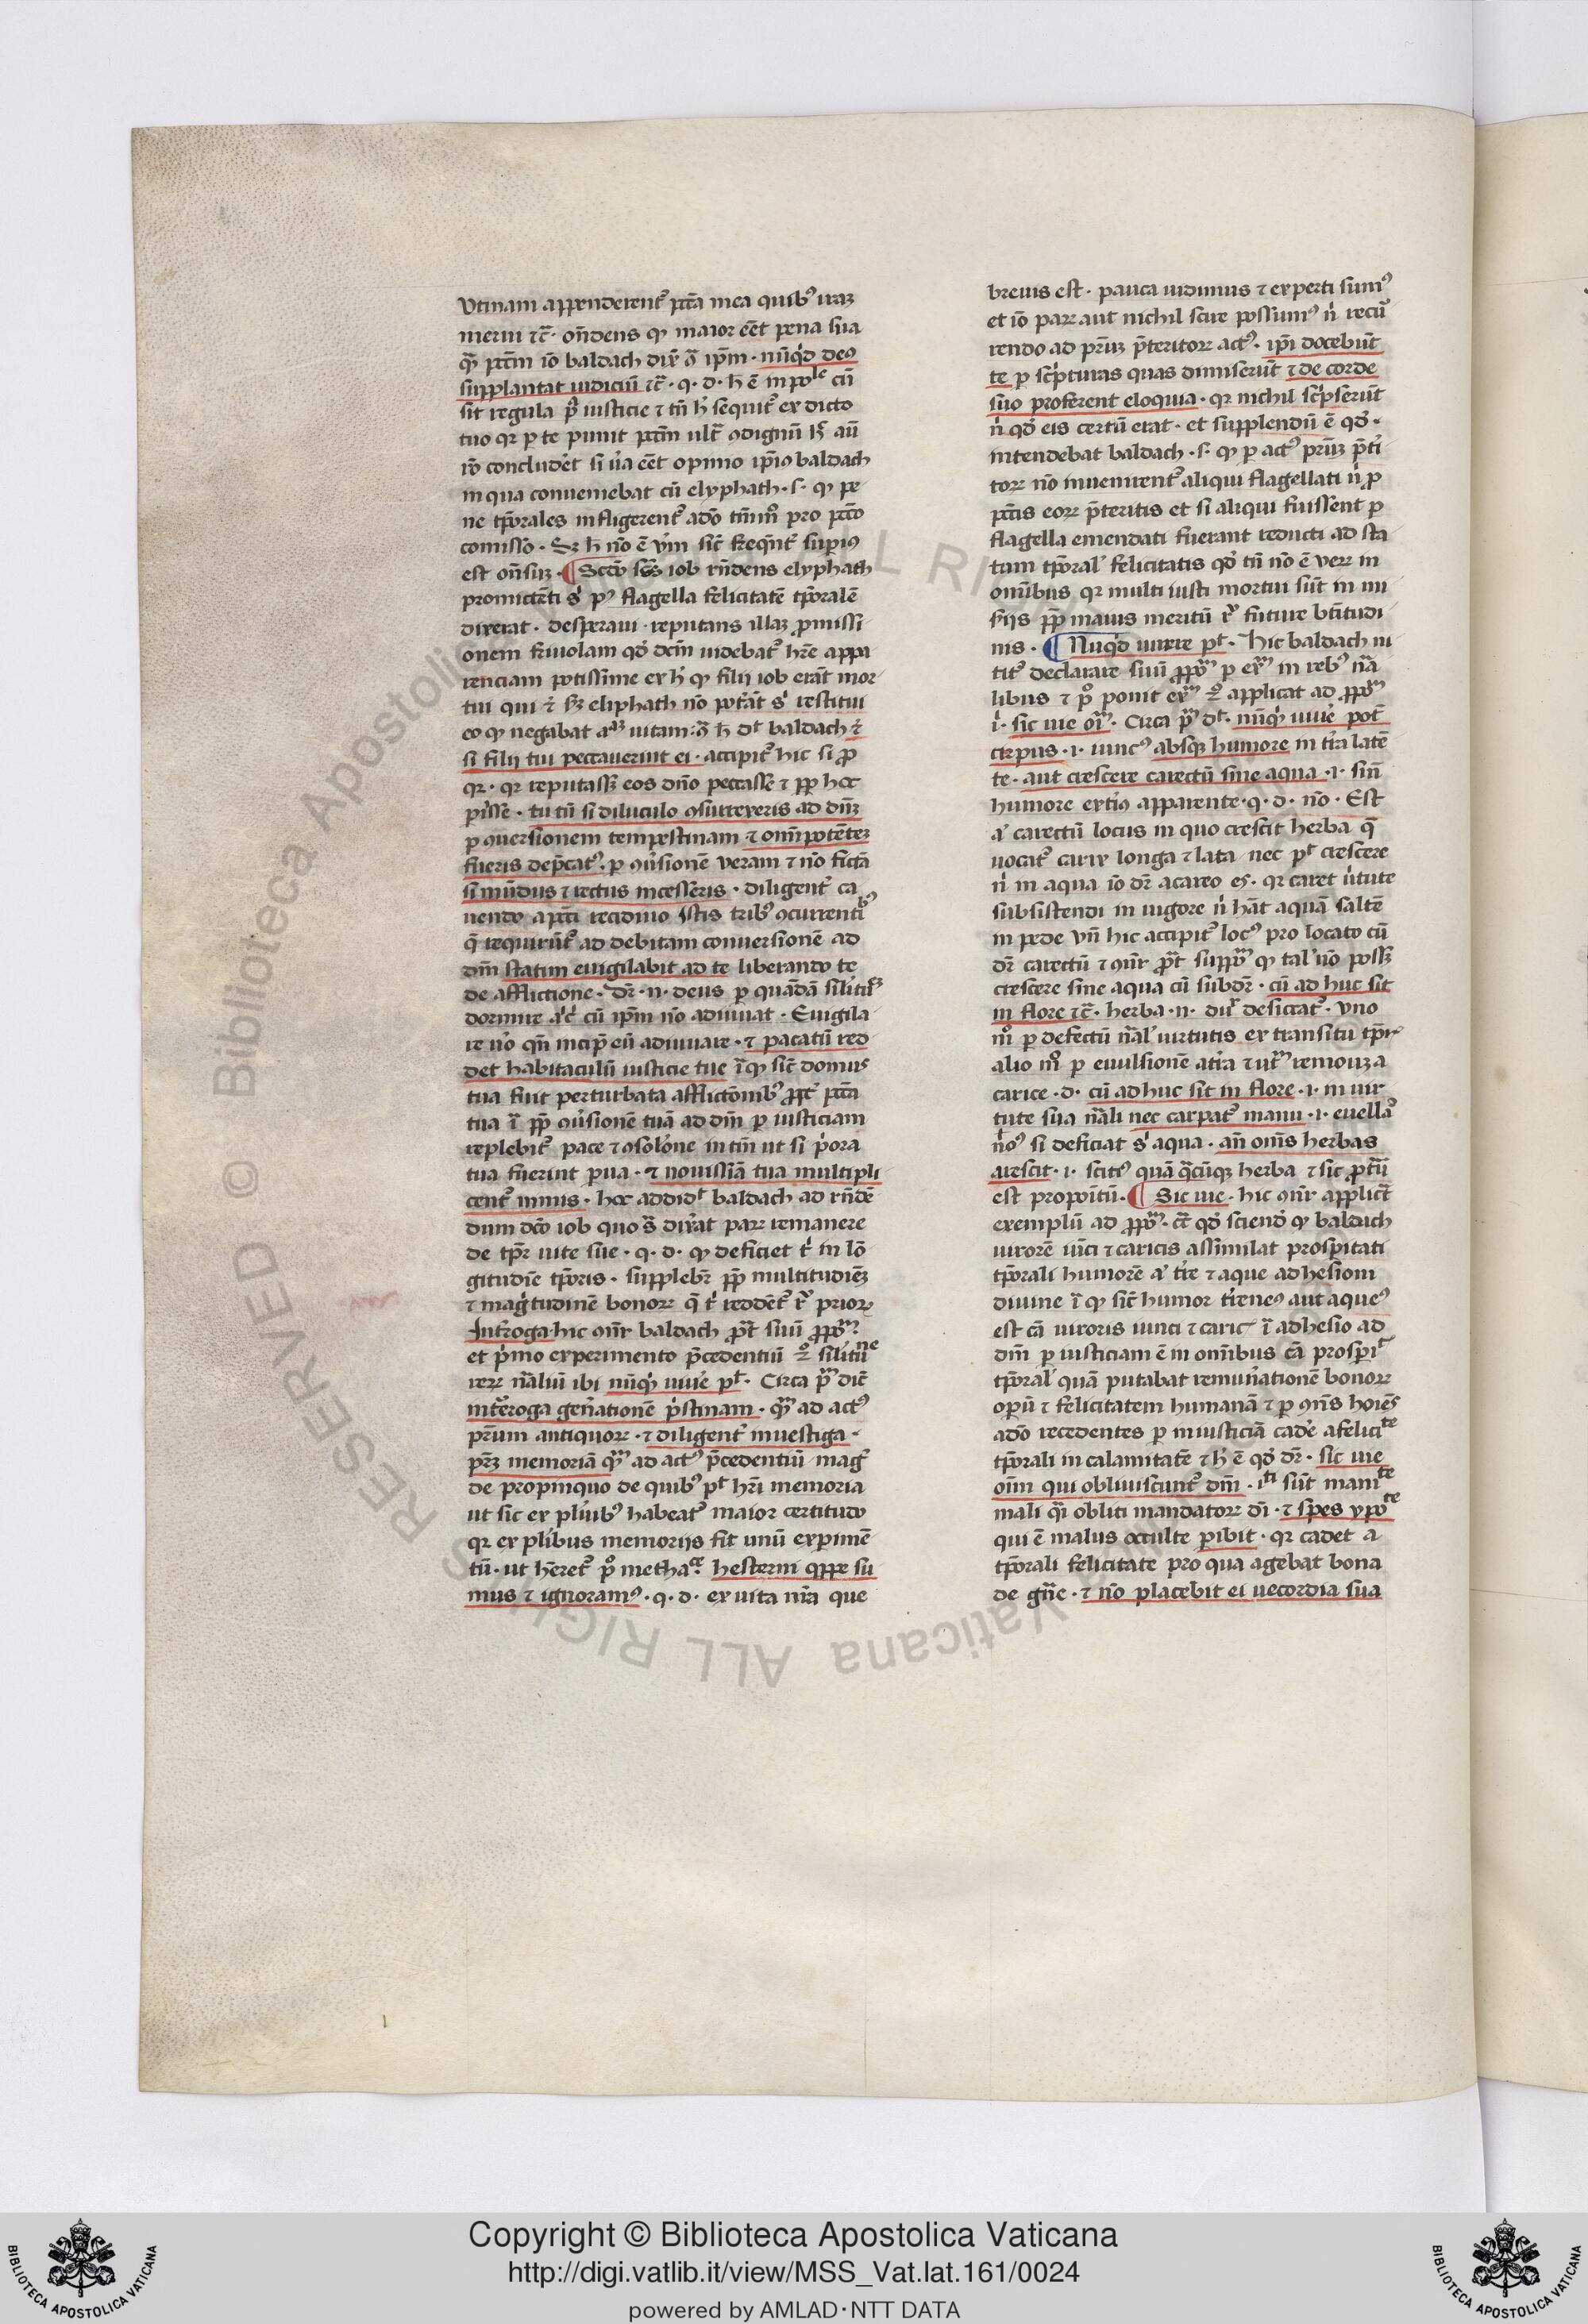 Utinam appenderent᷑ pctā mea quib᷒ iraꝫ
merui ⁊c̄· on̄dens ꝙ maior eēt pena sua
q̄ꝫ pctm̄ iō baldach dix̄ ꝯ̄ ip̄m · nūq̇d de᷒
supplantat iudiciū ⁊c̄ · q · d · h̄ ē inpoˡᵉ cū
sit regula pͥ iusticie ⁊ tn̄ hͥ sequit᷑ ex dicto
tuo qꝛ p te punit pctm̄ ult̄ ꝯdignū
iō concludet si ūa eēt opinio ip̄i᷒ baldach
in qua conueniebat cū elyphath · s · ꝙ pe
ne tp̄orales infligerent᷑ adō tm̄mͦ pro pctō
comisso · Sꝫ h̄ nō ē ūm sic̄ freq̄nt᷑ supi᷒
est on̄suꝫ · ¶ Scdo iob rn̄dens elyphath
promictēti sͥ p᷒ flagella felicitatē tp̄oralē
dixerat · desperaui · reputans illaꝫ ꝓmissi
onem friuolam qd᷒ dem̄ uidebat᷑ hr̄e appa
renciam potissime ex hͥ ꝙ filij iob erāt mor
tui qui ⁊ eliphath nō potāt sͥ restitui
eo ꝙ negabat uitam: h̄ dt baldach ⁊
si filij tui peccauerunt ei · accipit᷑ hic si ꝓ
qꝛ · qꝛ reputasſꝫ eos dn̄o peccasse ⁊ pp hoc
pisse · tu tn̄ si diluculo ꝯsurrexeris ad dn̄ꝫ
p ꝯuersionem tempestinam ⁊ om̄potēteꝫ
fueris dep̄cat᷒ · p ꝯūsionē veram ⁊ nō fictā
si mūdus ⁊ rectus incesseris · diligent᷑ ca
uendo a pctī recidiuo istis trib᷒ ꝯcurrentib᷒
q̄ requirūt᷑ ad debitam conuersionē ad
dm̄ statim euigilabit ad te liberando te
de afflictione · dr̄ · n · deus p quādā
dormire cū ipm̄ nō adiuuat · Euigila
re uͦ qn̄ incip̄ eū adiuuare · ⁊ pacatū red
det habitaculū iusticie tue ꝙ sic̄ domus
tua fuit perturbata afflictōnib᷒ ꝓpt᷑ pctā
tua pp ꝯūsionē tuā ad dm̄ p iusticiam
replebit᷑ pace ⁊ ꝯsolōne intm̄ ut si pͥora
tua fuerint pua · ⁊ nouissīa tua multipli
cent᷑ nimis · hoc addidt baldach ad rn̄dē
dum dc̄o iob quo dix̄at paꝝ remanere
de tp̄e uite sue · q · d · ꝙ deficiet tͥ in lō
gitudīe tp̄oris · supplebr̄ pp multitudīeꝫ
⁊ magͥtudinē bonoꝝ q̄ tͥ reddēt᷑ prioꝝ
Int̄roga · hic ꝯn̄r baldach ꝓbt suū ꝓpoͫ
et pͥmo experimento p̄cedentiū 2ͦ
reꝝ nālium ibi nūqͥ uiuē pt · Circa pͫ dic̄
int̄roga gen̄ationē pͥstinam · qͫ ad act᷒
pr̄um antiquoꝝ · ⁊ diligent᷑ inuestiga ·
pr̄ꝫ memoriā qͫ ad act᷒ p̄cedentiū mag᷒
de propinquo de quib᷒ pt hr̄i memoria
ut sic ex plūib᷒ habeat᷑ maior certitudo
qꝛ ex plībus memorijs fit unū expimē
tū · ut hēret᷑ pͦ metha · hesterni qͥppe su
mus ⁊ ignoram᷒ · q · d · ex uita nr̄a que
breuis est · pauca uidimus ⁊ experti sum᷒
et iō paꝝ aut nichil scire possum᷒ nͥ recū
rendo ad pr̄uꝫ p̄teritoꝝ act᷒ · ip̄i docebūt
te p sc̄pturas quas dimiserūt ⁊ de corde
suo proferent eloquia · qꝛ nichil sc̄pserūt
nͥ qd᷒ eis certū erat · et supplendū ē qd᷒ ·
intendebat baldach · s · ꝙ p act᷒ pr̄uꝫ p̄ti
toꝝ nō inuenirent᷑ aliqui flagellati nͥ ꝓ
pctīs eoꝝ p̄teritis et si aliqui fuissent p
flagella emendati fuerant reducti ad sta
tum tp̄oral᷒ felicitatis qd᷒ tn̄ nō ē veꝝ in
omībus qꝛ multi iusti mortui sūt in mi
serijs pp maius meritū future btītudi
nis · ¶ Nūq̇d uirere pt · Hic baldach ni
tit᷑ declarare suū ꝓpoͫ p exͫ in reb᷒ nā
libus ⁊ pͦ ponit exͫ 2ͦ applicat ad ꝓpoͫ
i · sic uie oīͫ · Circa pͫ dt · nūqͥ uiuē potͭ
cirpus · i · iunc᷒ absqꝫ humore in tr̄a latē
te · aut crescere carectū sine aqua · i · sin̄
humore exti᷒ apparente · q · d · nō · Est
aͭ carectū locus in quo crescit herba q̄
uocat᷑ carix longa ⁊ lata nec pt crescere
nͥ in aqua iō dr̄ a careo es · qꝛ caret ūtute
subsistendi in uigore nͥ hāt aquā saltē
in pede vn̄ hic accipit᷑ loc᷒ pro locato cū
dr̄ carectū ⁊ ꝯn̄r ꝓbt suppoͫ ꝙ tal᷒ nō possꝫ
crescere sine aqua cū subdr̄ · cū ad huc sit
in flore ⁊c̄ · herba · n · dupͬ desicat᷑ · vno
mͦ p defectū nāl᷒ uirtutis ex transitu tp̄is
alio mͦ p euulsionē a tr̄a ⁊ remouꝫ a
carice · d · cū ad huc sit in flore · i · in uir
tute sua nāli nec carpat᷑ manu · i · euellat᷑
si deficiat sͥ aqua · an̄ om̄s herbas
arescit · i · scit᷒ quā q̄cūqꝫ herba ⁊ sic ꝓbtū
est propoītū · ¶ Sic uie · hic ꝯn̄r applicͭ
exemplū ad ꝓpoͫ · cͣ qd᷒ sciendͦ ꝙ baldach
uirorē iūci ⁊ caricis assimilat prosperitati
tp̄orali humorē aͭ tr̄e ⁊ aque adhesioni
diuine ꝙ sic̄ humor tr̄ene᷒ aut aque᷒
est cā uiroris iunci ⁊ caric᷒ adhesio ad
dm̄ p iusticiam ē in omībus cā prospi
tp̄oral᷒ quā putabat remun̄ationē bonoꝝ
opū ⁊ felicitatem humanā ⁊ p ꝯn̄s hoīes
adō recedentes p iniusticiā cadē a feliciᵗᵉ
tp̄orali in calamitatē ⁊ hͥ ē qd᷒ dr̄ · sic uie
oīm qui obliuiscunt᷑ dm̄ · sūt
mali qͥ obliti mandatoꝝ dī · ⁊ spes ypoᵗᵉ
qui ē malus occulte pibit · qꝛ cadet a
tp̄orali felicitate pro qua agebat bona
de gn̄e · ⁊ nō placebit ei uecordia sua
Copyright © Biblioteca Apostolica Vaticana
http://digi.vatlib.it/view/MSS_Vat.lat.161/0024
powered by AMLAD·NTT DATA
BIBLIOTECA APOSTOLICA VATICANA
BIBLIOTECA APOSTOLICA VATICANA
© Biblioteca Apostolica Vaticana ALL RIGHTS RESERVED